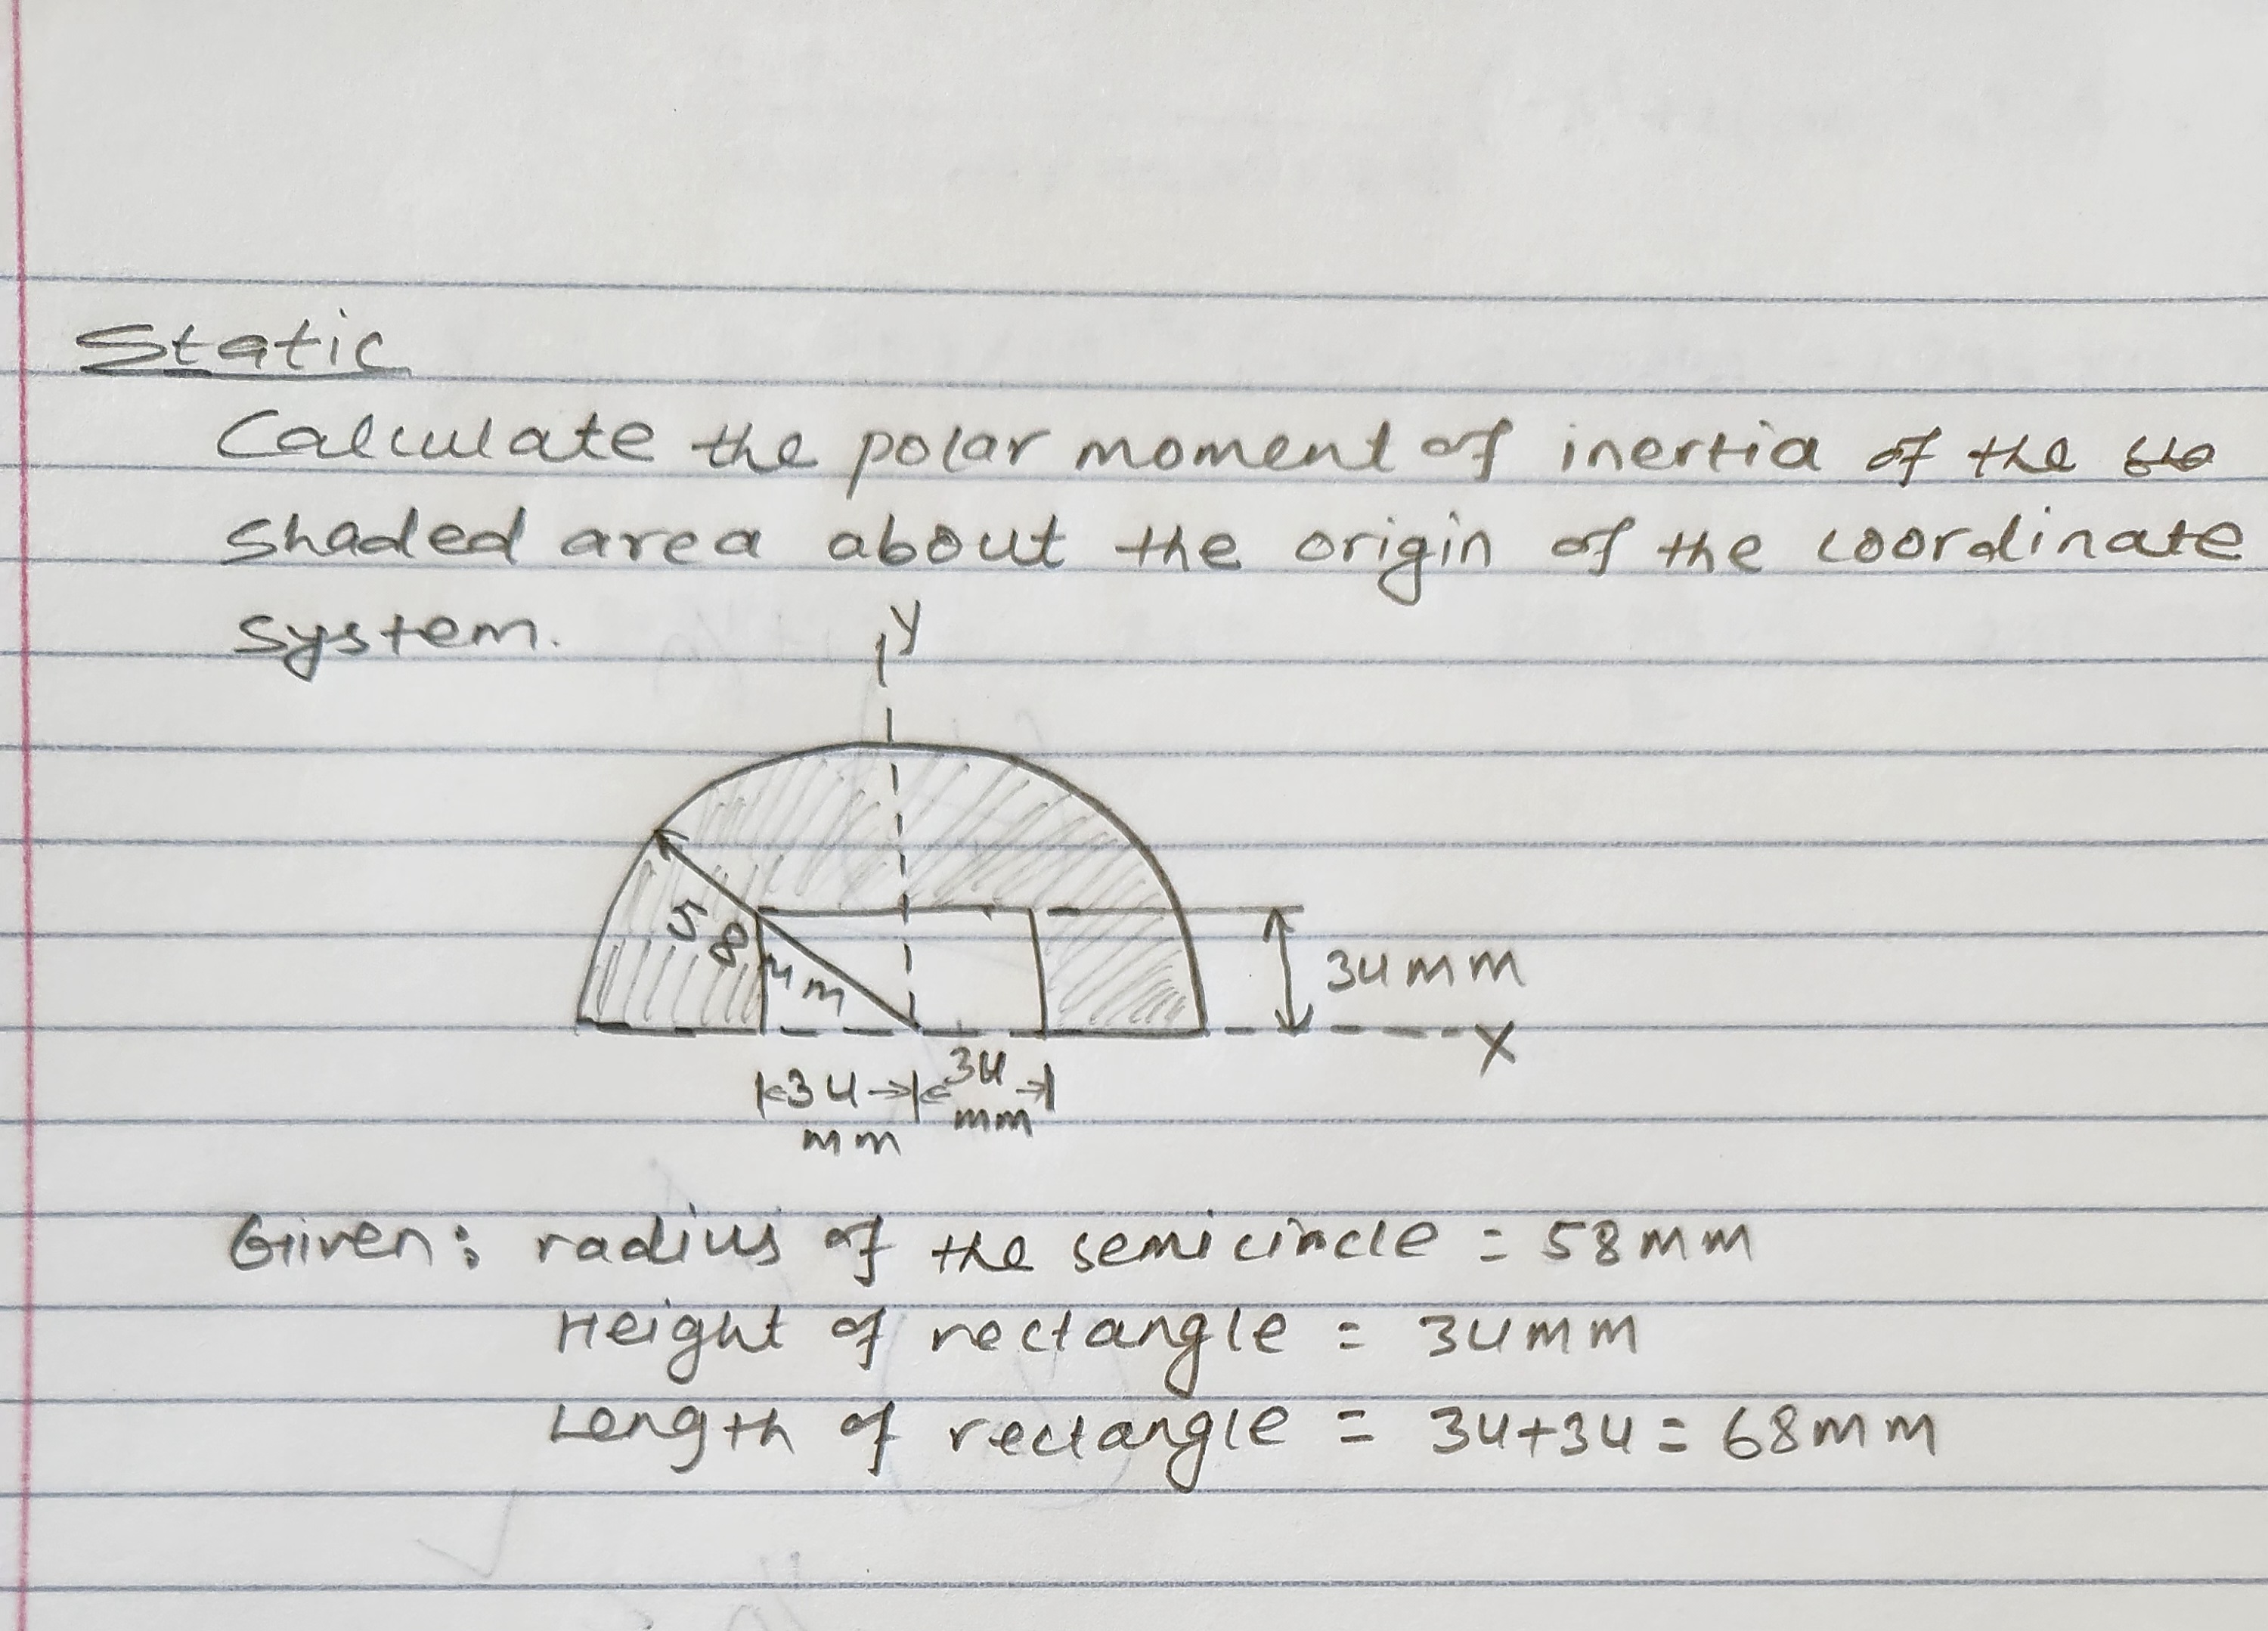 Static
Calculate the polar moment of inertia of the
shaded area about the origin of the coordinate
system.
y
58 mm
34mm
x
34 mm
34 mm
Given: radius of the semicircle = 58mm
Height of rectangle = 34mm
Length of rectangle = 34+34 = 68mm